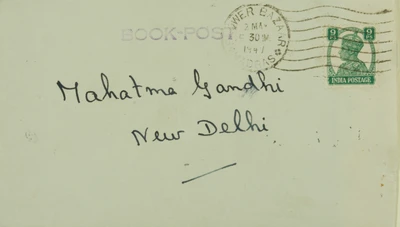 BOOK-POST
FLOWER BAZAAR
2 MA
30
1947
MADRAS
9 9
INDIA POSTAGE
Mahatma Gandhi
New Delhi